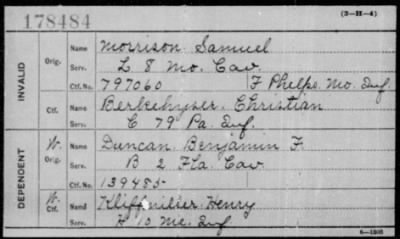 178484
(3-H-4)
INVALID
Orig.
Name Morrison Samuel
Serv. L 8 Mo. Cav.
Ctf. No. 797060 F Phelps Mo. Inf
Ctf.
Name Berkehyser Christian
Serv. C 79 Pa. Inf.
DEPENDENT
W. Orig.
Name Duncan Benjamin F.
Serv. B 2 Fla. Cav
Ctf. No. 139485
W. Ctf.
Name Henry
Serv. H 10 Inf
6-1205